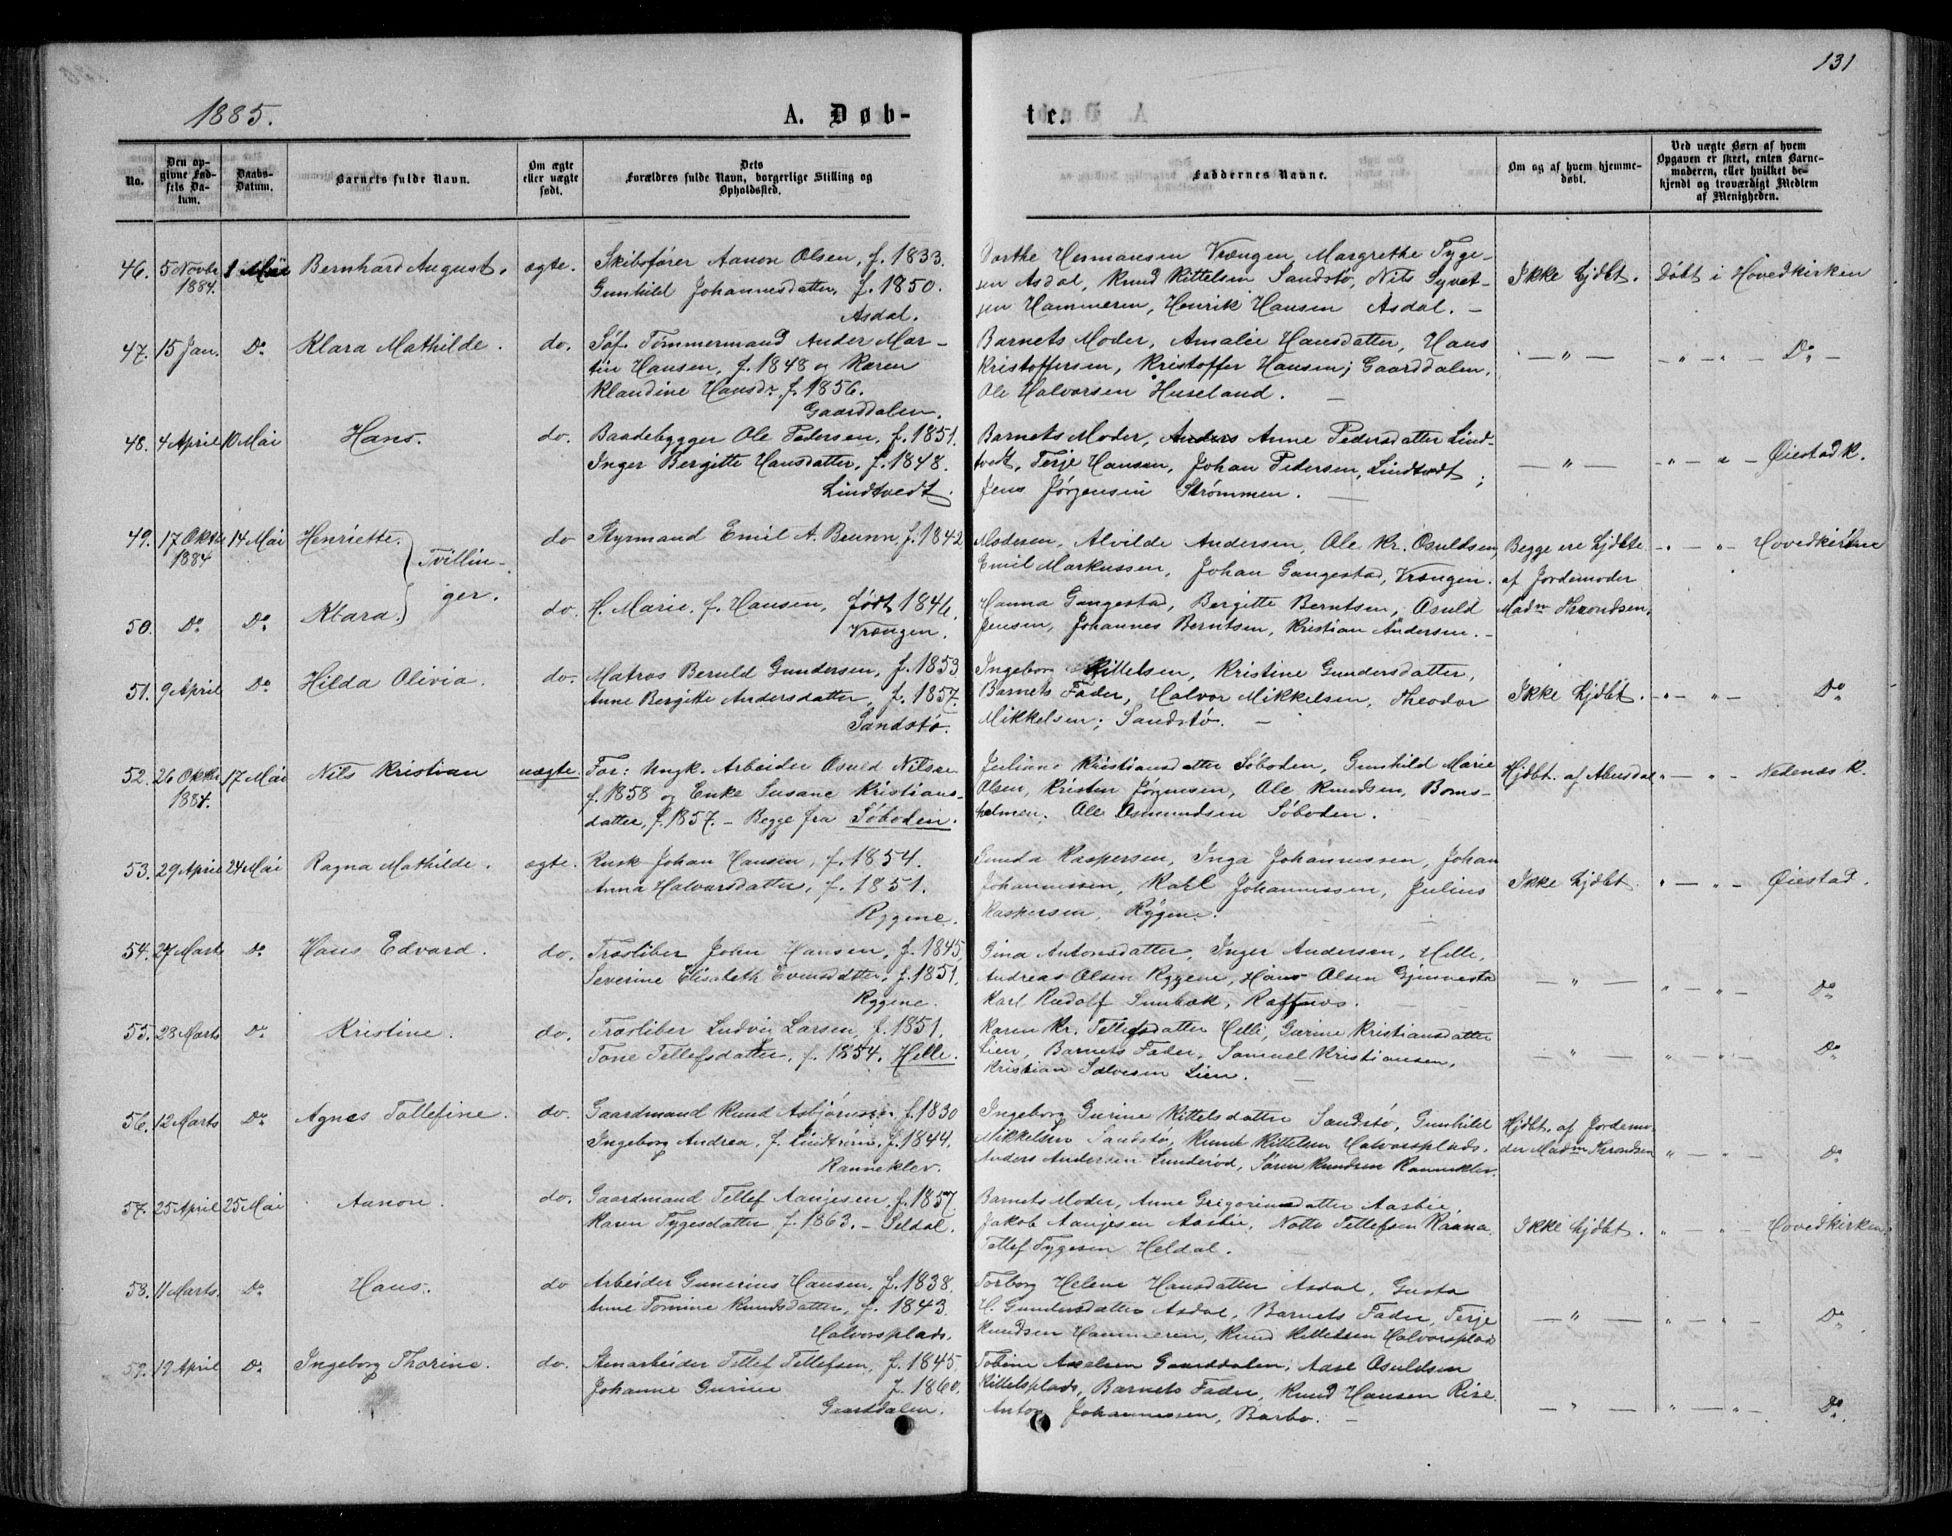 131
1885.
A. Døb-
te.
No.
Den op-
givne Fød-
sels Da-
tum.
Daabs-
Datum.
Barnets fulde Navn.
Om ægte
eller uægte
født.
Dets
Forældres fulde Navn, borgerlige Stilling og
Opholdssted.
Faddernes Navne.
Om og af hvem hjemme-
døbt.
Ved uægte Børn af hvem
Opgaven er skeet, enten Barne-
moderen, eller hvilket be-
kjendt og troværdigt Medlem
af Menigheden.
46. 5 Novbr 1884. Mai Bernhard August. ægte.
Skibsfører Aanon Olsen, f. 1833.
Gunhild Johannesdatter, f. 1850.
Asdal.
Dorthe Hermansen Vrængen, Margrethe Tyge-
sen Asdal, Knud Kittelsen Sandstø, Nils Syvet-
sen Hammeren, Henrik Hansen Asdal. —
Ikke hjdbt. Døbt i Hovedkirken
47. 15 Jan. Do Klara Mathilde. do.
Søf. Tømmermand Ander Mar-
tin Hansen, f. 1848 og Karen
Klaudine Hansdr. f. 1856.
Gaarddalen.
Barnets Moder, Amalie Hansdatter, Hans
Kristoffersen, Kristoffer Hansen; Gaarddalen,
Ole Halvorsen Huseland. —
— " — — " — " — Do —
48. 4 April 10 Mai Hans. do.
Baadebygger Ole Pedersen, f. 1851.
Inger Bergitte Hansdatter, f. 1848.
Lindtvedt.
Barnets Moder, Anders Anne Pedersdatter Lind-
tvedt, Terje Hansen, Johan Pedersen, Lindtvedt;
Jens Jørgensen Strømmen. —
— " — — " — " — Øiestad K.
49. 17 Oktbr 1884 14 Mai Henriette. Tvillin- do
Styrmand Emil A. Brunn f. 1842
Moderen, Alvilde Andersen, Ole Kr. Osuldsen,
Emil Markussen, Johan Gangestad, Vrængen.
Begge ere hjdbte
af Jordemoder
— " — " — Hovedkirken
50. Do Do Klara. ger. do.
H. Marie, f. Hansen, født 1846.
Vrængen.
Hanna Gangestad, Bergitte Berntsen, Osuld
Jensen, Johannes Berntsen, Kristian Andersen. —
Madm Throndsen,
51. 9 April Do Hilda Olivia. do.
Matros Beruld Gundersen, f. 1853
Anne Bergitte Andersdatter, f. 1857.
Sandstø.
Ingeborg Kittelsen, Kristine Gundersdatter,
Barnets Fader, Halvor Mikkelsen, Theodor
Mikkelsen; Sandstø. —
Ikke hjdbt. — " — " — Do
52. 26 Oktbr 1884. 17 Mai Nils Kristian uægte.
For: Ungk. Arbeider Osuld Nilsen
f. 1858 og Enke Susane Kristians-
datter, f. 1857. — Begge fra Søboden.
Juliane Kristiansdatter Søboden, Gunhild Marie
Olsen, Kristen Jørgensen, Ole Knudsen, Boms-
holmen. Ole Osmundsen Søboden.
Hjdbt. af " — " — Nedenæs K.
53. 29 April 24 Mai Ragna Mathilde. ægte.
Kusk Johan Hansen, f. 1854.
Anna Halvorsdatter, f. 1851.
Rygene.
Kaspersen, Inga Johannessen, Johan
Johannessen, Karl Johannessen, Julius
Kaspersen, Rygene.
Ikke hjdbt. " — " — Øiestad.
54. 27 Marts Do Hans Edvard. do.
Træsliber John Hansen, f. 1845,
Severine Elisabeth Evensdtter, f. 1851.
Rygene.
Gina Antonsdatter, Inger Andersen, Helle,
Andreas Olsen Rygene, Hans Olsen
Karl Rudolf Raffnæs. —
— " — " — " — Do
55. 28 Marts Do Kristine. do.
Træsliber Ludvig Larsen, f. 1851.
Tone Tellefsdatter, f. 1854. Helle.
Karen Kr. Tellefsdatter Helle, Gurine Kristiansdatter
Lien, Barnets Fader, Samuel Kristiansen,
Kristian Salvesen Lien. —
— " — " — " — Do
56. 12 Marts Do Agnes Tallefine. do.
Gaardmand Knud Asbjørnsen f. 1830
Ingeborg Andrea, f. Lindtrum, f. 1844.
Ranneklev.
Ingeborg Gurine Kittelsdatter Sandstø, Gunhild
Mikkelsen Sandstø, Knud Kittelsen Halvorsplads,
Anders Andersen Lunderød, Søren Knudsen Ranneklev.
Hjdbt. af Jordemo-
der Madm Throndsen
" — " — Do
57. 25 April 25 Mai Aanon. do.
Gaardmand Tellef Aanjesen, f. 1857
Karen Tygesdatter, f. 1863. — Seldal.
Barnets Moder, Anne Aasbie,
Jakob Aanjesen Aasbie, Notto Tellefsen Raana
Tellef Tygesen Heldal.
Ikke hjdbt. " — " — Hovedkirken
58. 11 Marts. Do Hans. do
Arbeider Gunerius Hansen, f. 1838.
Anne Tomine Knudsdatter, f. 1843.
Halvorsplads.
Torborg Helene Hansdatter Asdal, Gusta
H. Gundersdatter Asdal, Barnets Fader, Terje
Knudsen Hammeren, Knud Kittelsen Halvorsplads
— " — " — " — Do
59. 19 April Do Ingeborg Thorine. do.
Stenarbeider Tellef Tellefsen, f. 1845.
Johanne Gurine f. 1860.
Gaarddalen.
Tobine Axelsen Gaarddalen, Aase Osuldsen
Kittelsplads, Barnets Fader, Knud Hansen Rise
Anton Johannessen, Barbo. —
— " — " — " — Do.